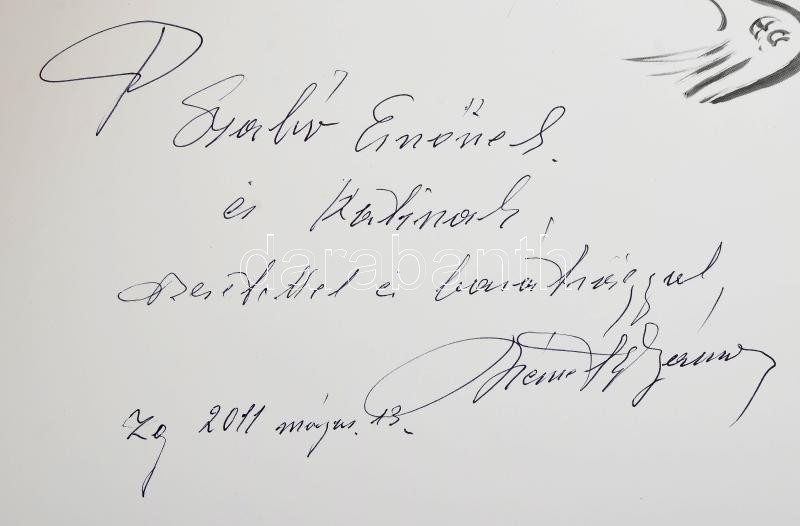 Szabó Ernőnek
és Katinak,
szeretettel és barátsággal
Németh János
Zg 2011 május. 13.
darabanth